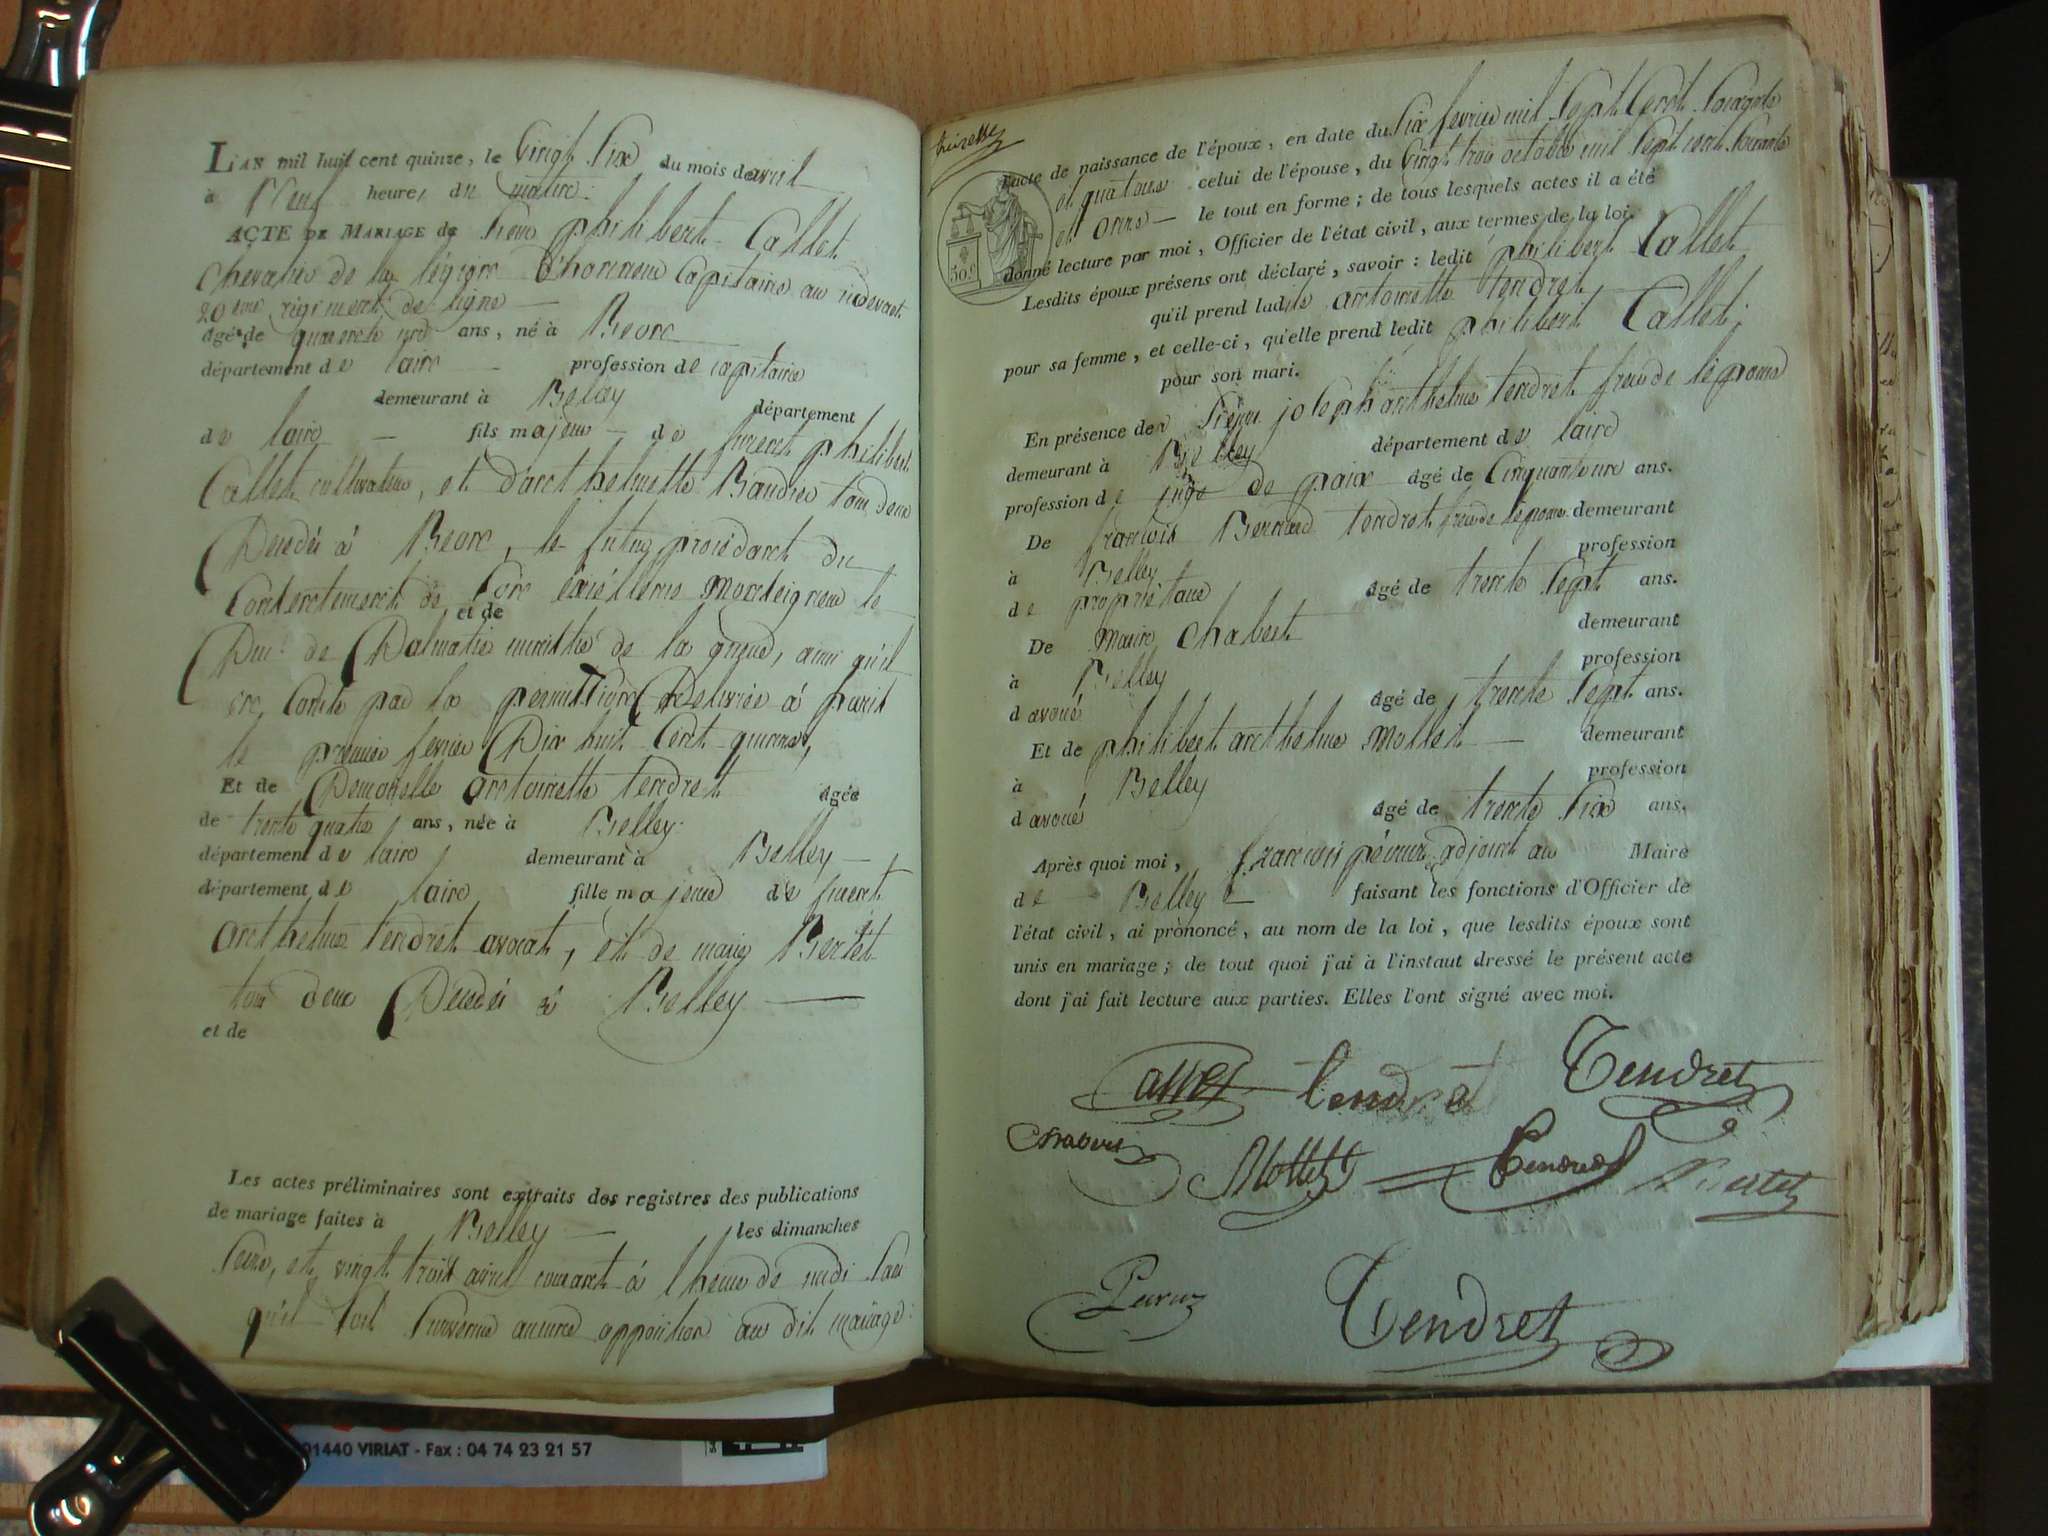 L'AN mil huit cent quinze, le Vingt Six du mois de avril
à Neuf heures du matin.
ACTE DE MARIAGE de Sieur philibert Callet
Chevalier de la légion d'honneur Capitaine au cidevant
20eme régiment de ligne —
âgé de quarente un ans, né à Beon
département de lain — profession de capitaine
demeurant à Belley département
de lain — fils majeur — de furent philibert
Callet cultivateur, et d'anthelmette Baudre tous deux
Décédés à Beon, le futur procédant du
Consentement de Son éxcéllence Monseigneur le
et de
Duc de Dalmatie ministre de la guerre, ainsi qu'il
en Conste par la permission Délivrée à paris
le premier fevrier Dix huit Cent quinze,
Et de Demoiselle antoinette tendret âgée
de trente quatre ans, née à Belley.
département de lain demeurant à Belley —
département de lain fille majeure de furent
anthelme tendret avocat, et de marie Bertet
tous deux Décédés à Belley —
et de
Les actes préliminaires sont extraits des registres des publications
de mariage faites à Belley — les dimanches
Seize, et vingt trois avril courant à l'heure de midi San
qu'il Soit Survenue aucune opposition au dit mariage.
l'acte de naissance de l'époux, en date du Six fevrier mil Sept Cent Soixante
et quatorze celui de l'épouse, du Vingt trois octobre mil Sept cent Soixante
et onze — le tout en forme; de tous lesquels actes il a été
donné lecture par moi, Officier de l'état civil, aux termes de la loi.
50 c
Lesdits époux présens ont déclaré, savoir: ledit philibert Callet
qu'il prend ladite antoinette tendret —
pour sa femme, et celle-ci, qu'elle prend ledit philibert Callet;
pour son mari.
En présence de Sieur joseph anthelme tendret frere de lépouse
demeurant à Belley département de lain
profession de juge de paix âgé de Cinquante un ans.
De francois Bernard tendret frere de lépouse demeurant
à Belley profession
de proprietaire âgé de trente Sept ans.
De Marin Chabert demeurant
à Belley profession
d avoué âgé de trente Sept ans.
Et de philibert anthelme Mollet — demeurant
à Belley profession
d avoué âgé de trente Six ans.
Après quoi moi, francois pévruz adjoint au Maire
de Belley — faisant les fonctions d'Officier de
l'état civil, ai prononcé, au nom de la loi, que lesdits époux sont
unis en mariage; de tout quoi j'ai à l'instaut dressé le présent acte
dont j'ai fait lecture aux parties. Elles l'ont signé avec moi.
Callet Tendret Tendret
Chabert Mollet Tendret Bertet
Tendret
01440 VIRIAT - Fax : 04 74 23 21 57